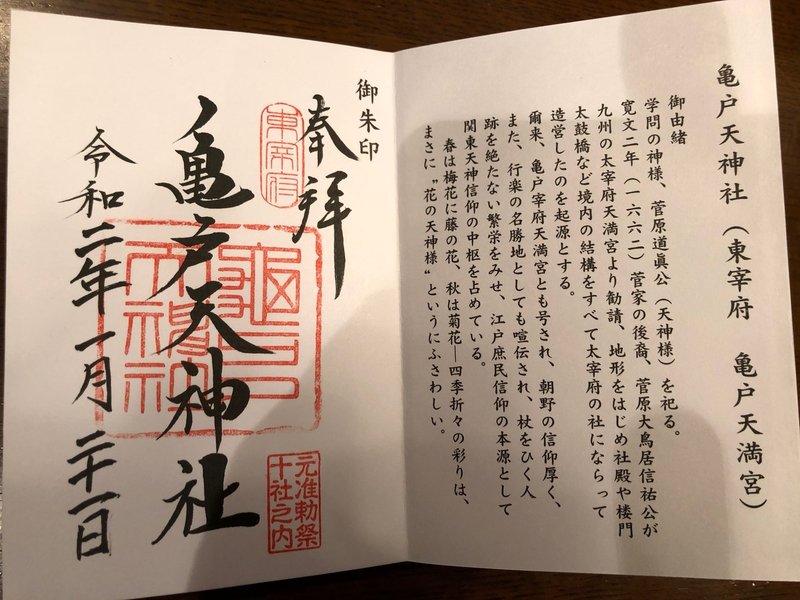 亀戸天神社（東宰府　亀戸天満宮）
御由緒
学問の神様、菅原道眞公（天神様）を祀る。
寛文二年（一六六二）菅家の後裔、菅原大鳥居信祐公が
九州の太宰府天満宮より勧請、地形をはじめ社殿や楼門
太鼓橋など境内の結構をすべて太宰府の社にならって
造営したのを起源とする。
爾来、亀戸宰府天満宮とも号され、朝野の信仰厚く、
また、行楽の名勝地としても喧伝され、杖をひく人
跡を絶たない繁栄をみせ、江戸庶民信仰の本源として
関東天神信仰の中枢を占めている。
春は梅花に藤の花、秋は菊花―四季折々の彩りは、
まさに〝花の天神様〟というにふさわしい。
御朱印
奉拝
東宰府
亀戸天神社
亀戸
天神社
元准勅祭
十社之内
令和二年一月二十一日